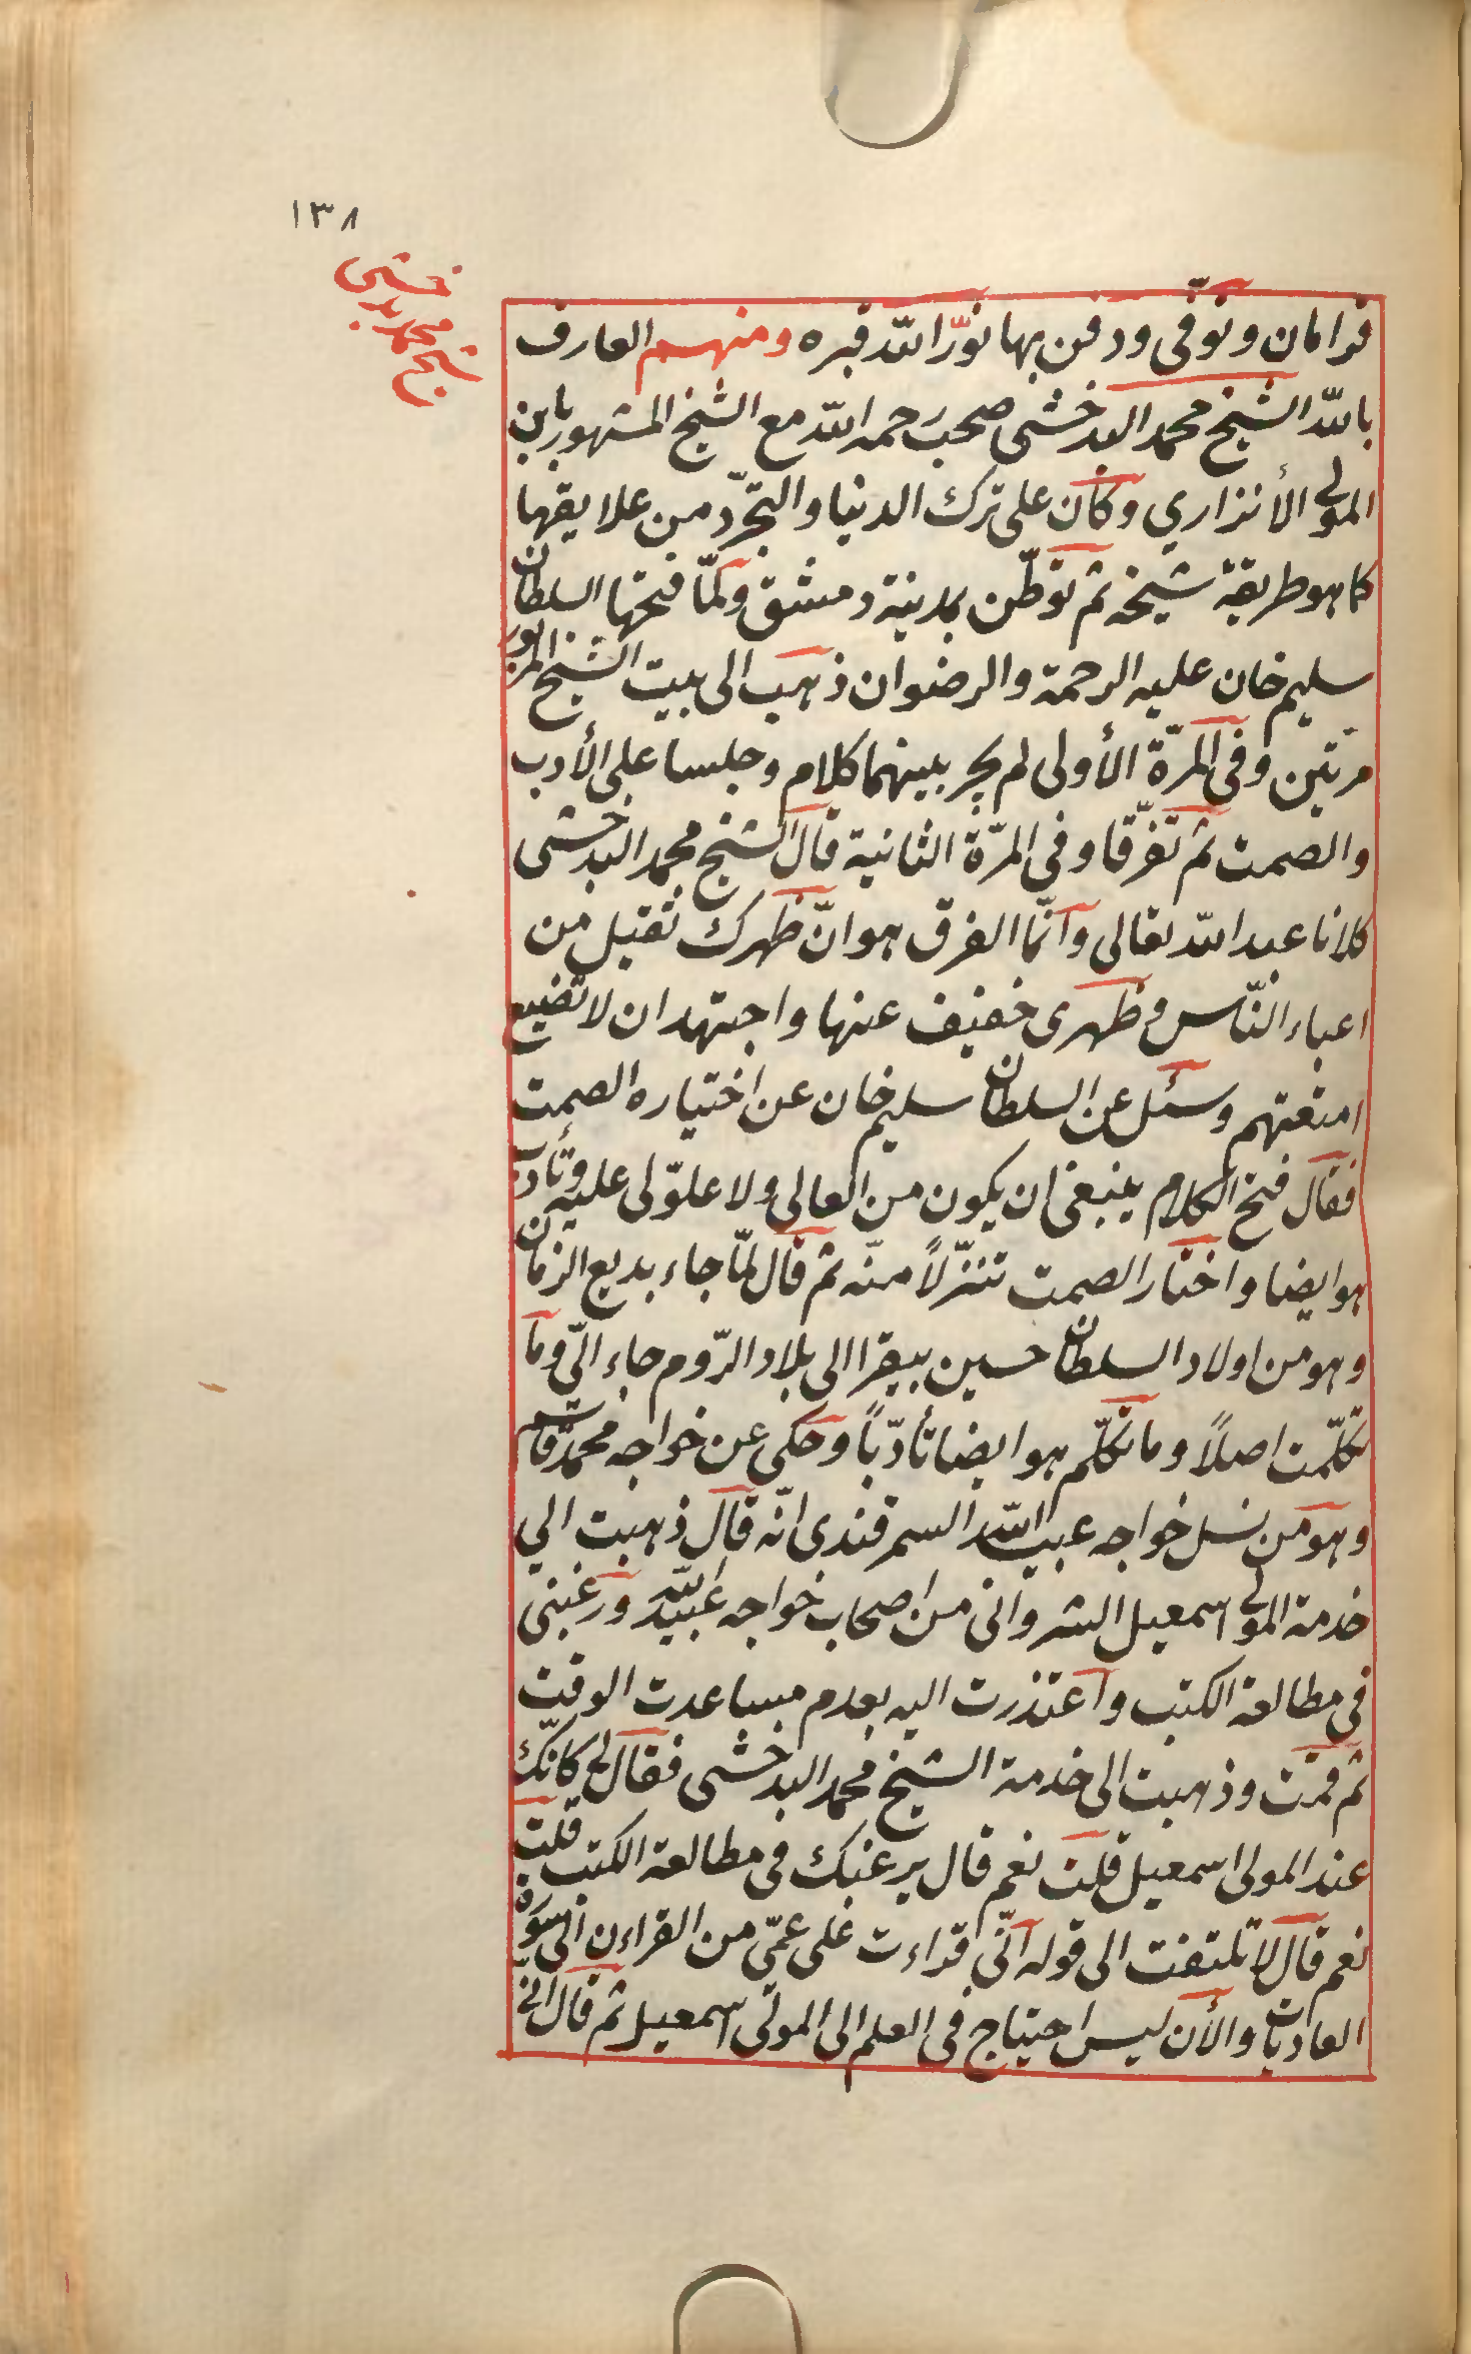 ١٣٨
شيخ محمد بدخشى
قرامان وتوفّى ودفن بها نوّر اللّه قبره ومنهم العارف
باللّه الشيخ محمد البدخشى صحب رحمه اللّه مع الشيخ المشهور بابن
المولى الأنزاري وكان على ترك الدنيا والتجرّد من علايقها
كما هو طريقة شيخه ثم توطّن بمدينة دمشق ولمّا فتحها السلطان
سليم خان عليه الرحمة والرضوان ذهب الى بيت الشيخ المزبور
مرّتين وفى المرّة الأولى لم يجر بينهما كلام وجلسا على الأدب
والصمت ثم تفرّقا وفي المرّة الثانية قال الشيخ محمد البدخشى
كلانا عبد اللّه تعالى وانّما الفرق هو انّ ظهرك ثقيل من
اعباء النّاس وظهرى خفيف عنها واجتهد ان لا تضيع
امتعتهم وسئل عن السلطان سليم خان عن اختياره الصمت
فقال فتح الكلام ينبغى ان يكون من العالى ولا علوّ لى عليه وتأدب
هو ايضا واختار الصمت تنزّلاً منه ثم قال لمّا جاء بديع الزمان
وهو من اولاد السلطان حسين بيقرا الى بلاد الرّوم جاء الىّ وما
تكلّمت اصلاً وما تكلّم هو ايضا تأدّباً وحكى عن خواجه محمد قاسم
وهو من نسل خواجه عبيد اللّه السمرقندى انّه قال ذهبت الي
خدمة المولى اسمعيل الشروانى من اصحاب خواجه عبيد اللّه ورغبنى
فى مطالعة الكتب واعتذرت اليه بعدم مساعدت الوقت
ثم قمت وذهبت الى خدمة الشيخ محمد البدخشى فقال لى كانّك
عند المولى اسمعيل قلت نعم قال يرغبك فى مطالعة الكتب قلت
نعم قال لا تلتفت الى قوله انّى قراءت على عمّى من القراءن الى سورة
العاديات والأن ليس احتياج فى العلم الى المولى اسمعيل ثم قال انى